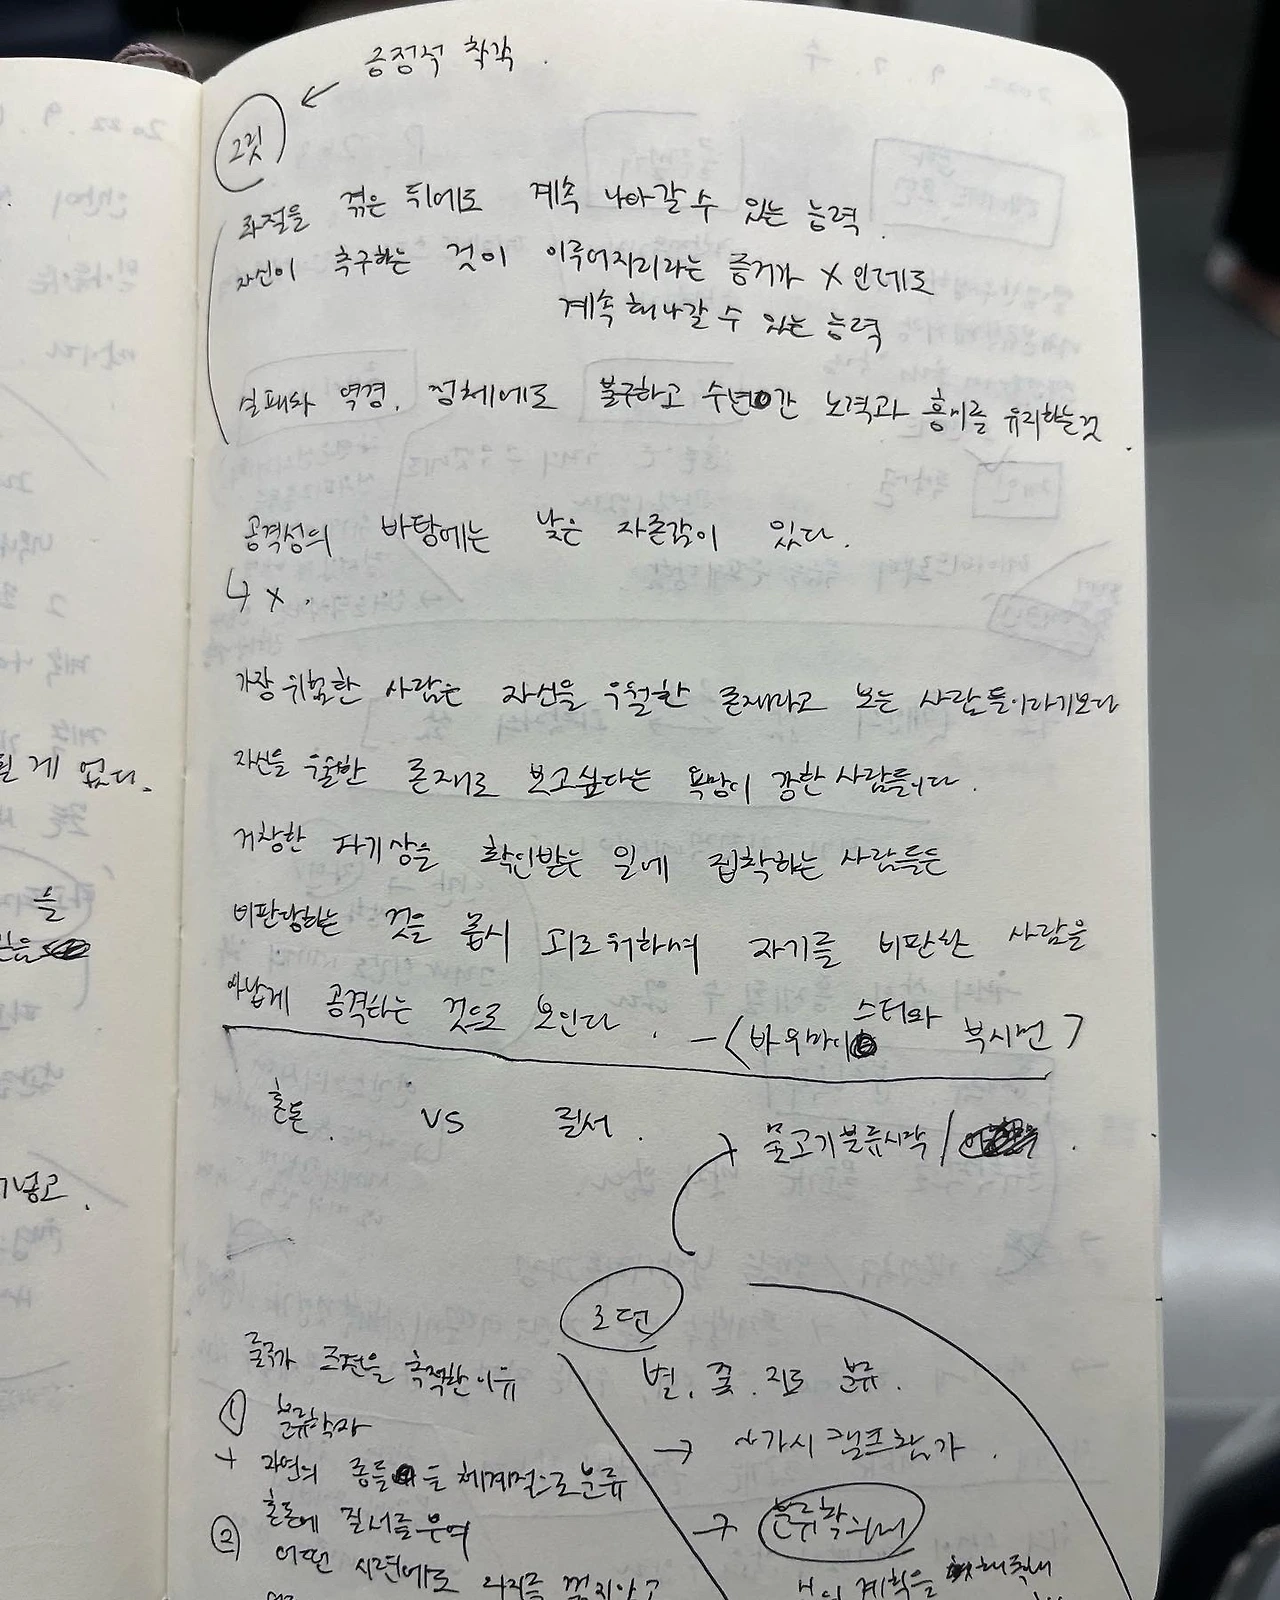 긍정적 착각.
그릿
좌절을 겪은 뒤에도 계속 나아갈 수 있는 능력.
자신이 추구하는 것이 이루어지리라는 증거가 X 인데도
계속 해나갈 수 있는 능력
실패와 역경, 정체에도 불구하고 수년간 노력과 흥미를 유지하는것.
공격성의 바탕에는 낮은 자존감이 있다.
↳ X.
가장 위험한 사람은 자신을 우월한 존재라고 보는 사람들이라기보다
자신을 우월한 존재로 보고싶다는 욕망이 강한 사람들이다.
거창한 자기상을 확인받는 일에 집착하는 사람들은
비판당하는 것을 몹시 괴로워하며 자기를 비판한 사람을
사납게 공격하는 것으로 보인다. - <바우마이스터와 부시먼>
혼돈. VS 질서.
→ 물고기분류시작 /
조던
별, 꽃, 지도 분류.
→ 아가시 캠프참가.
→ 분류학의
신의 계획을 해독해
룰루가 조던을 추적한이유
① 분류학자
+ 자연의 종들을 체계적으로분류
혼돈에 질서를부여
② 어떤 시련에도 의지를 꺾지않고
될게 없다.
들
기넣고.